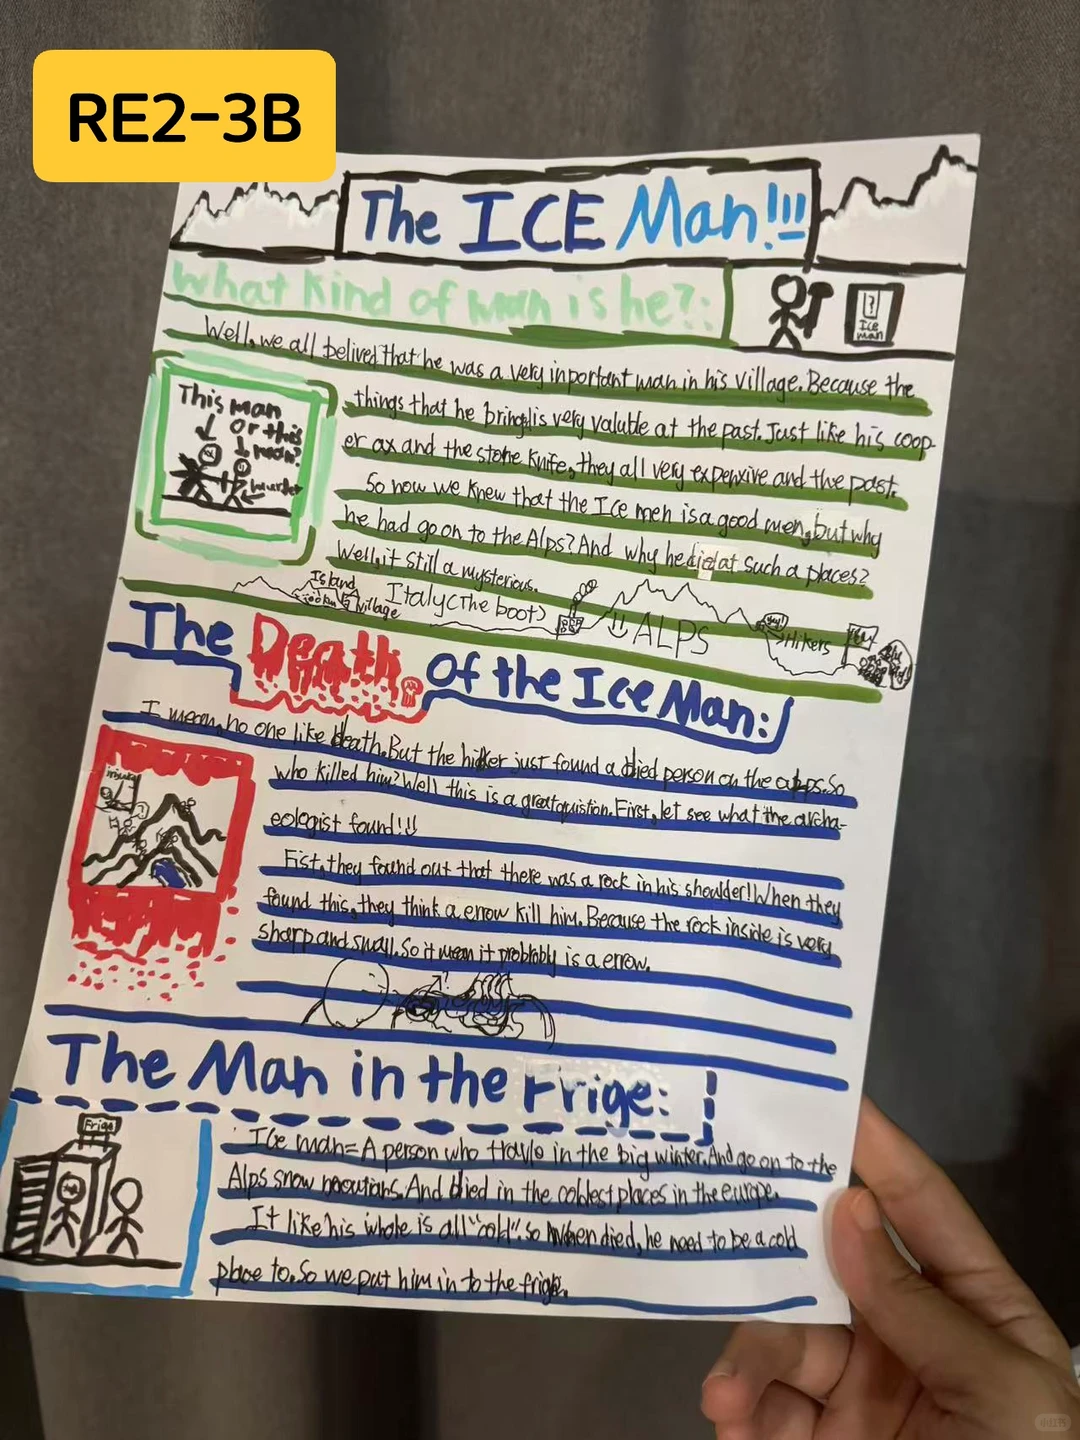 RE2-3B
The ICE Man!!!
What kind of man is he?:
Ice
man
Well, we all belived that he was a very inportant man in his village. Because the
This man
or this
man?
murder
things that he bring is very valuble at the past. Just like his coop-
er ax and the stone knife, they all very expenxive and the past.
So now we knew that the Ice men is a good men, but why
he had go on to the Alps? And why he did at such a places?
Well, it still a mysterious.
Island
village
Italy(The boot)
ALPS
Hikers
The Death of the Ice Man:
I mean, no one like death. But the hiker just found a died person on the alps. So
who killed him? Well this is a great quistion. First, let see what the archa-
eologist found!!!
Fist, they found out that there was a rock in his shoulder!! When they
found this, they think a errow kill him. Because the rock inside is very
sharp and small. So it mean it probrobly is a errow.
The Man in the Frige:
Frige
Ice man=A person who travle in the big winter. And go on to the
Alps snow mountians. And died in the coldest places in the europe.
It like his whole is all "cold". so when died, he need to be a cold
place to. So we put him in to the frige.
小红书